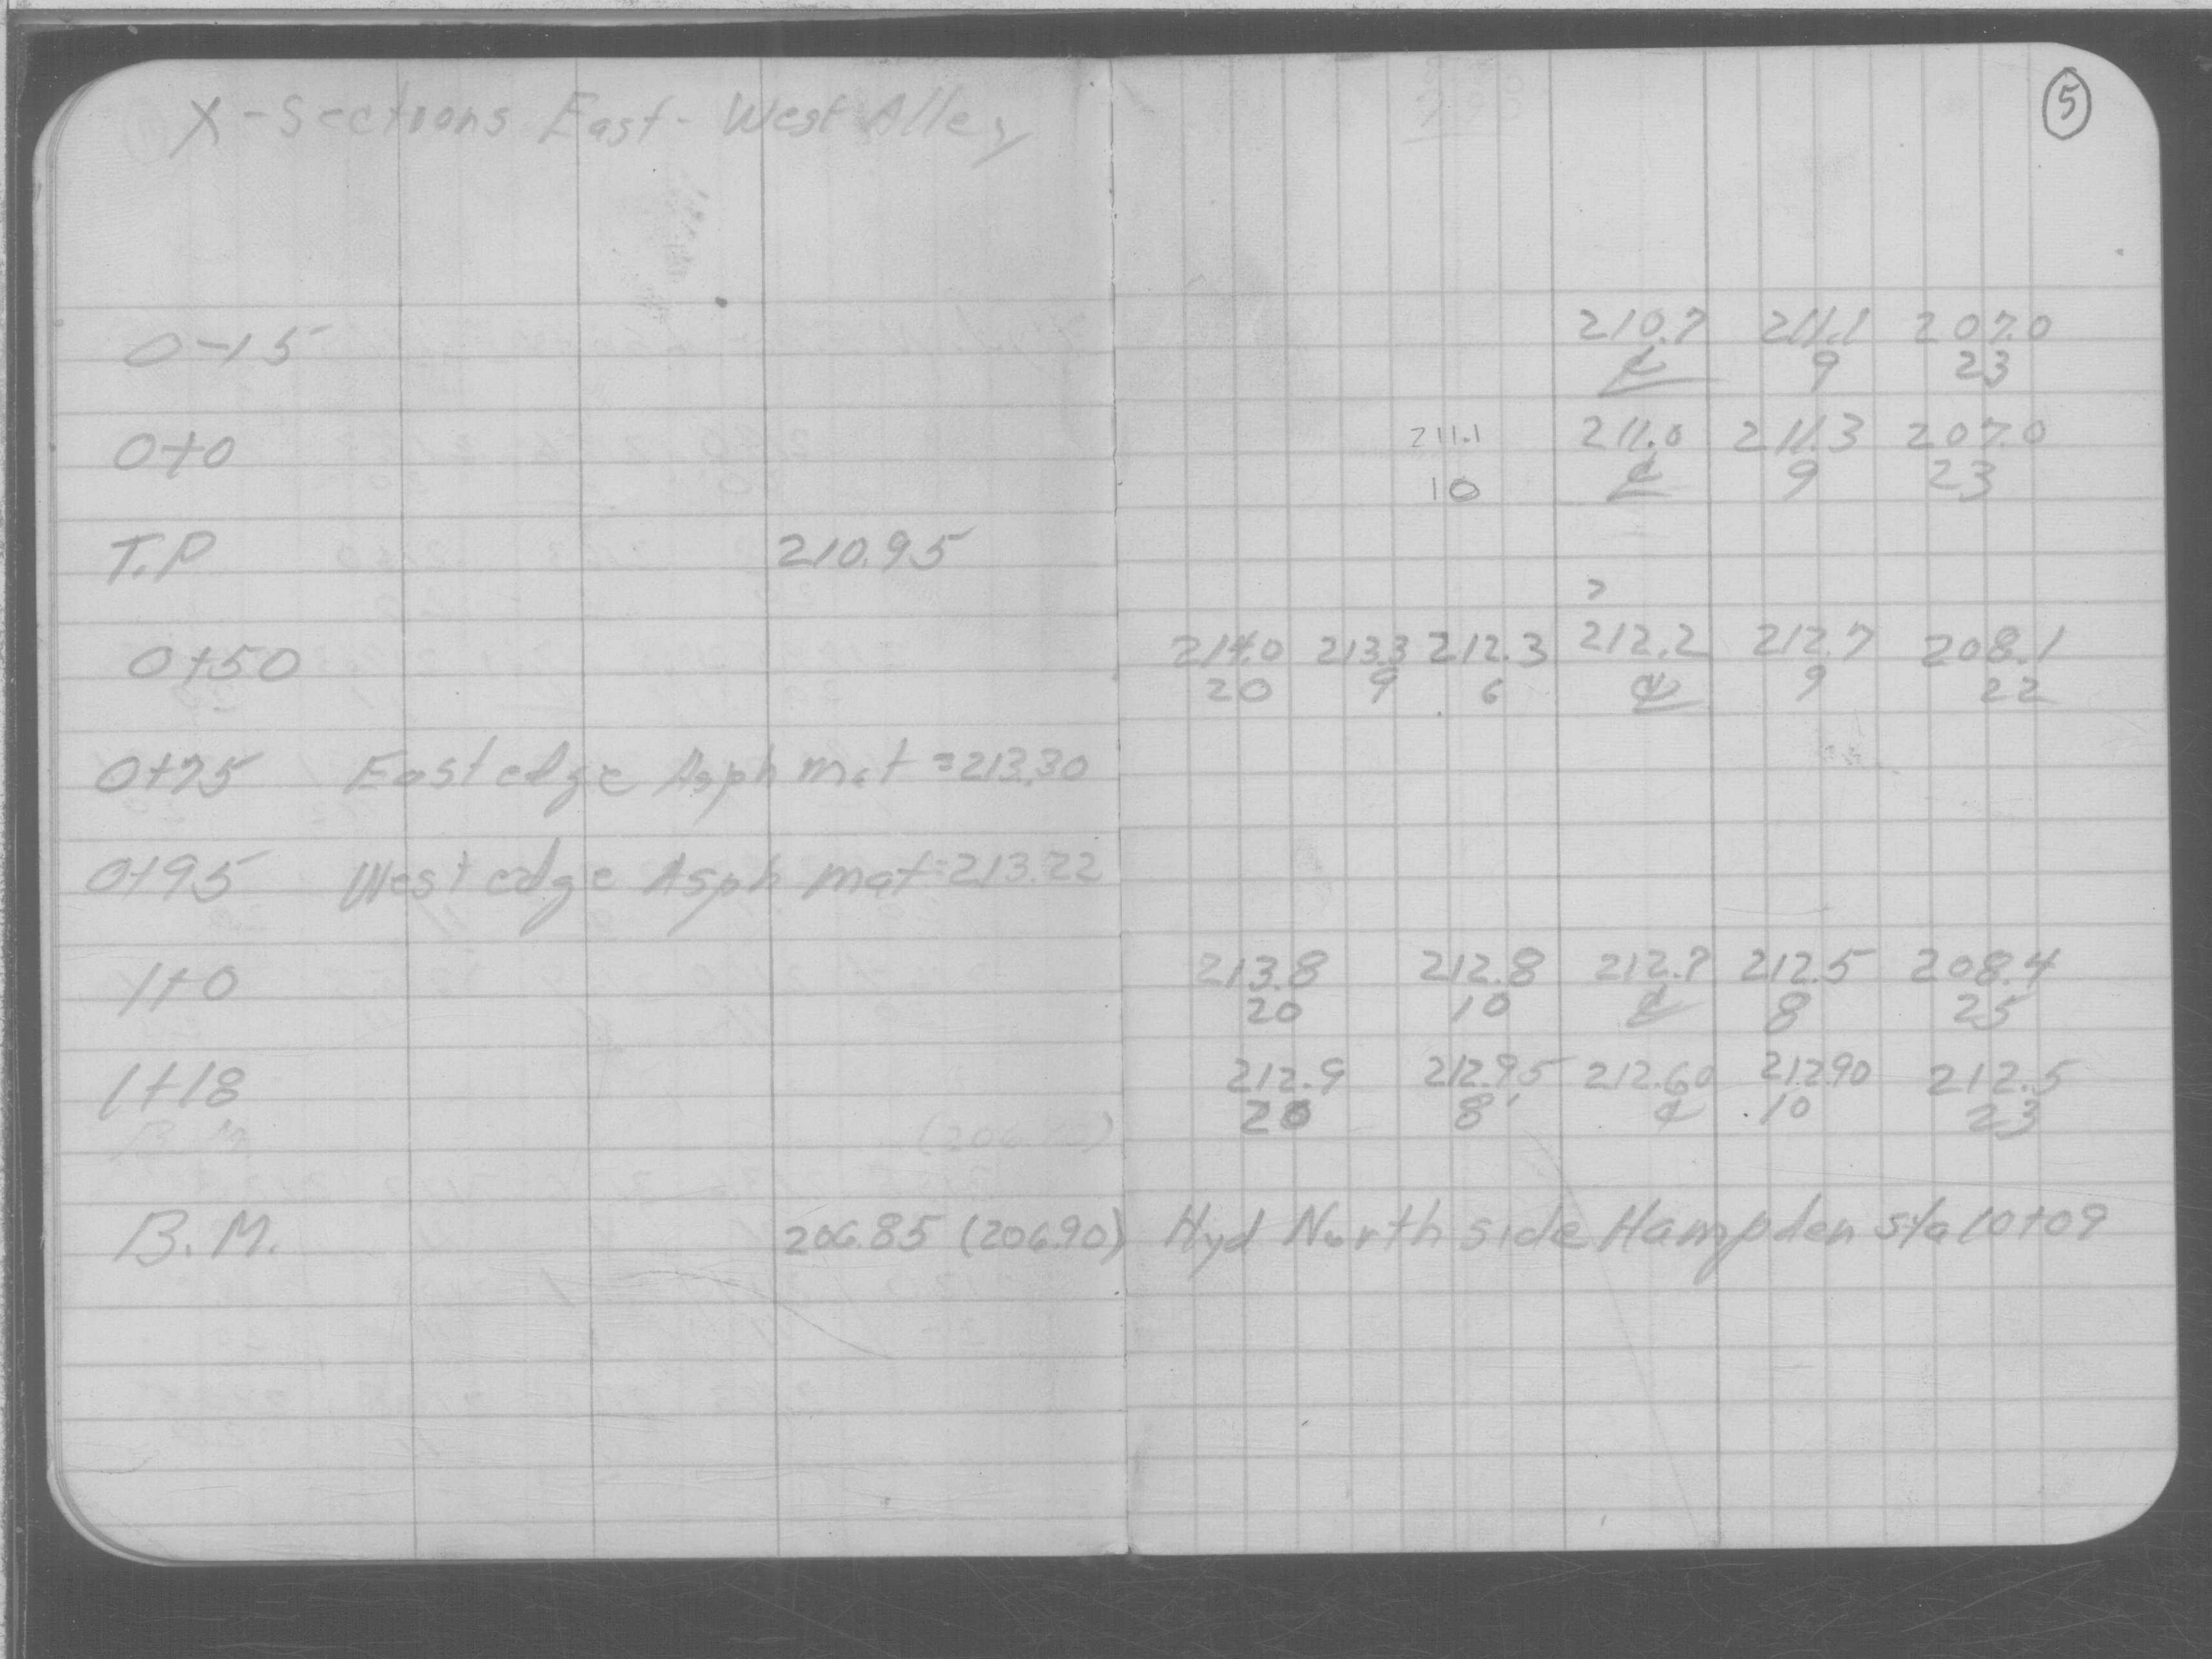 X-Sections East-West Alley
5
0-15 210.7 211.1 207.0
℄ 9 23
0+0 211.1 211.0 211.3 207.0
10 ℄ 9 23
T.P 210.95
?
0+50 214.0 213.3 212.3 212.2 212.7 208.1
20 9 6 ℄ 9 22
0+75 East edge Asph mat = 213.30
0+95 West edge Asph mat = 213.22
1+0 213.8 212.8 212.7 212.5 208.4
20 10 ℄ 8 25
1+18 212.9 212.95 212.60 212.90 212.5
20 8' ℄ 10 23
B.M.
B.M. 206.85 (206.90) Hyd North side Hampden sta 10+09